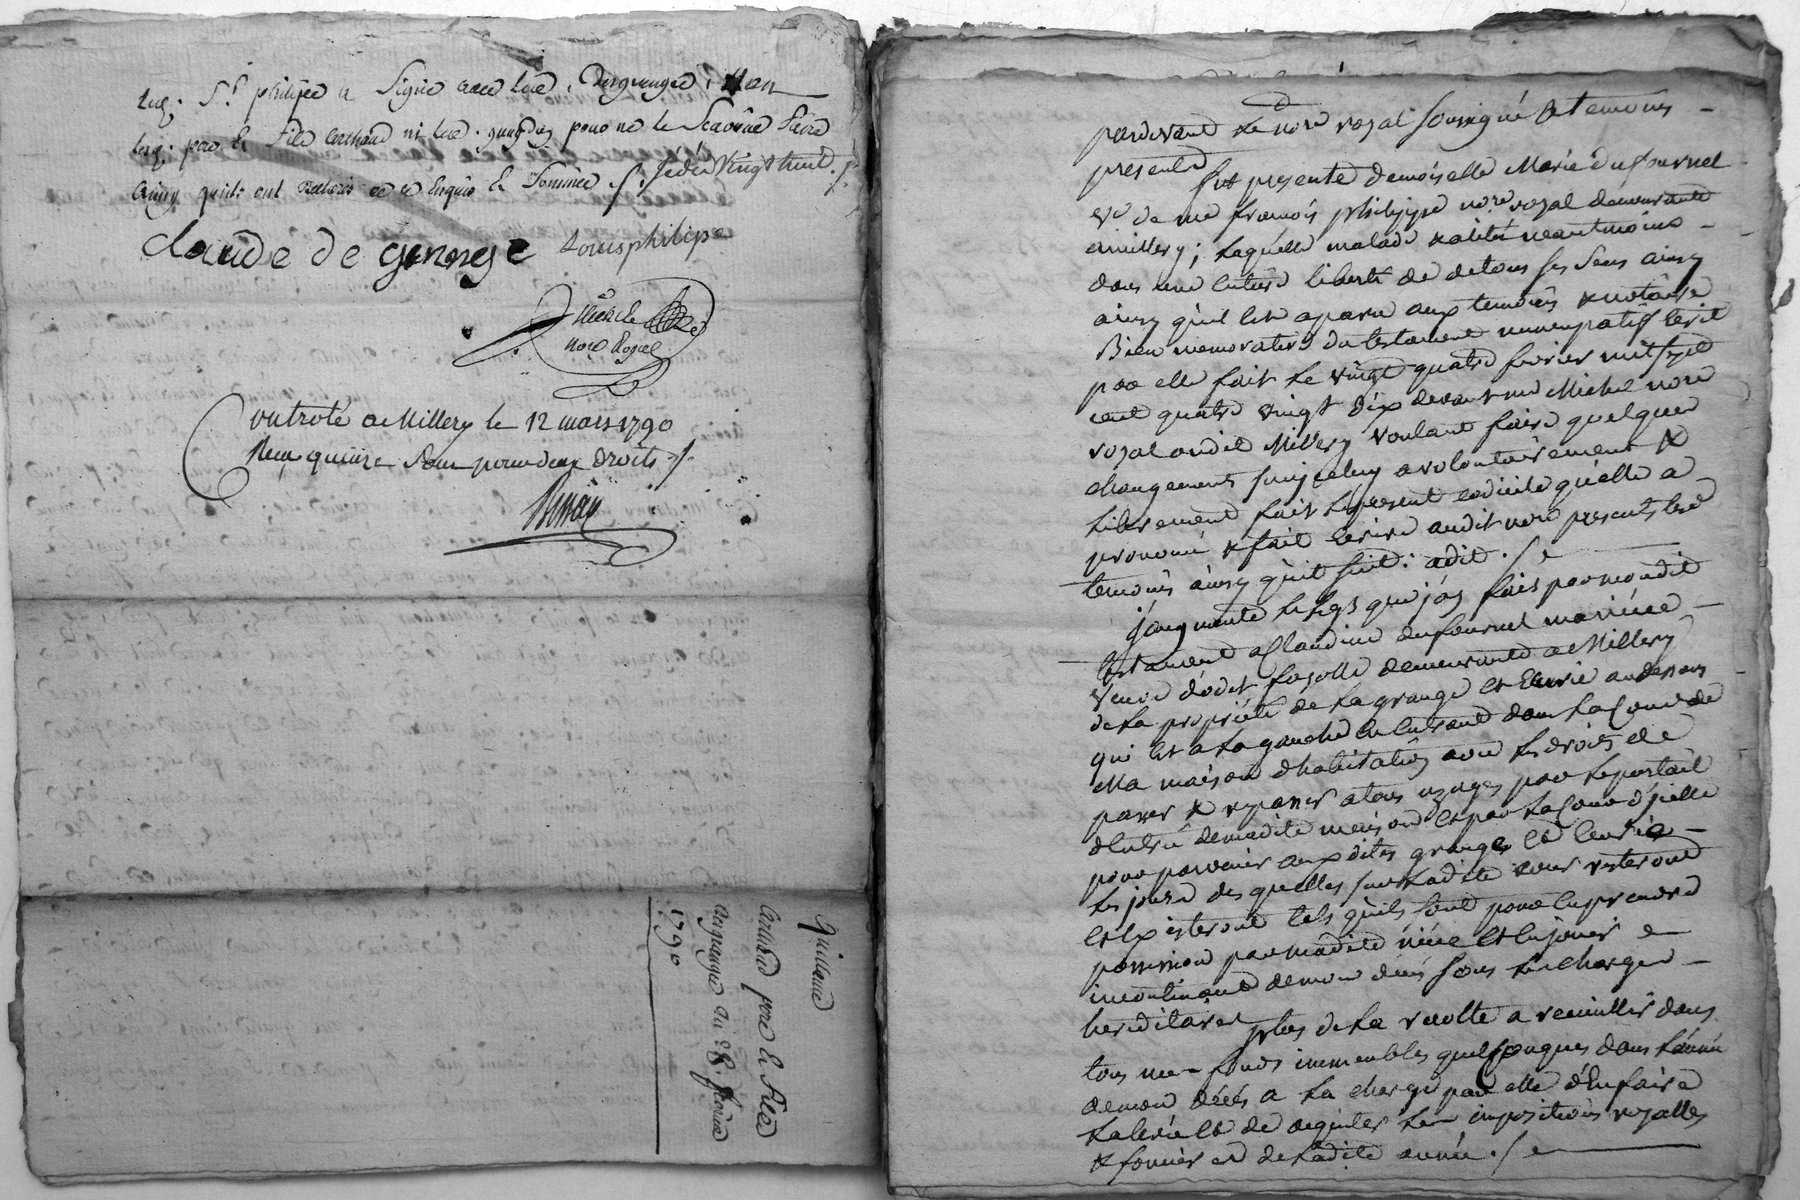 led. Sr. philipe a Signé avec led. Degeorge, Non
led. pere & fils Arthaud ni led. pour ne le Scavoire faire
Ainsy quils ont declaré de ce Enquis & Sommés ./. vingt huit ./.
claude de george Louis philipe
Michel
nore Royal
Controlé a Millery le 12 mars 1790
Reçu quinze Sous pour deux droits ./.
Quittance
Arthaud pere & fils
degeorge du 28 fevrier
1790
pardevant Le nore royal soussigné & temoins
presents
fut presente demoiselle Marie Dufournel
ve de me francois philippe nore royal demeurante
amillery; Laquelle malade & alitée neantmoins
dans une entiere liberté de de tous ses sens ainsy
ainsy quil est aparu aux temoins & notaire
Bien memorative du testament nuncupatif Ecrit
par elle fait Le vingt quatre fevrier mil sept
cent quatre vingt dix devant me Michel nore
royal audit Millery voulant faire quelques
changements sur jceluy a volontairement &
Librement fait Le present codicile quelle a
prononcé & fait Ecrire audit nore presents lesd
temoins ainsy quil suit: a dit ./.
j'augmente Le legs que j'ay fais par mondit
testament a Claudine dufournel ma niéce
veuve d'odet fayolle demeurante a Millery
de La proprieté de La grange et Ecurie audessous
qui est a La gauche En Entrant dans La Cour de
Ma maison d'habitation avec Les droits de
passer & repasser a tous uzages par Le portail
d'Entrée de madite maison et par La Cour d'jcelle
pour parvenir auxdites granges et Ecurie
Les jours des quelles sur Ladite cour resteront
et Existeront tels quils sont pour En prendre
possession par madite niéce et En jouir
incontinent de mon decés sous Les charges
hereditaires
plus de La recolte a recueillir dans
tous mes fonds immeubles quelconques dans L'année
de mon décés a La charge par elle d'En faire
La levée et de aquiter Les impositions royalles
& foncieres de Ladite année ./.